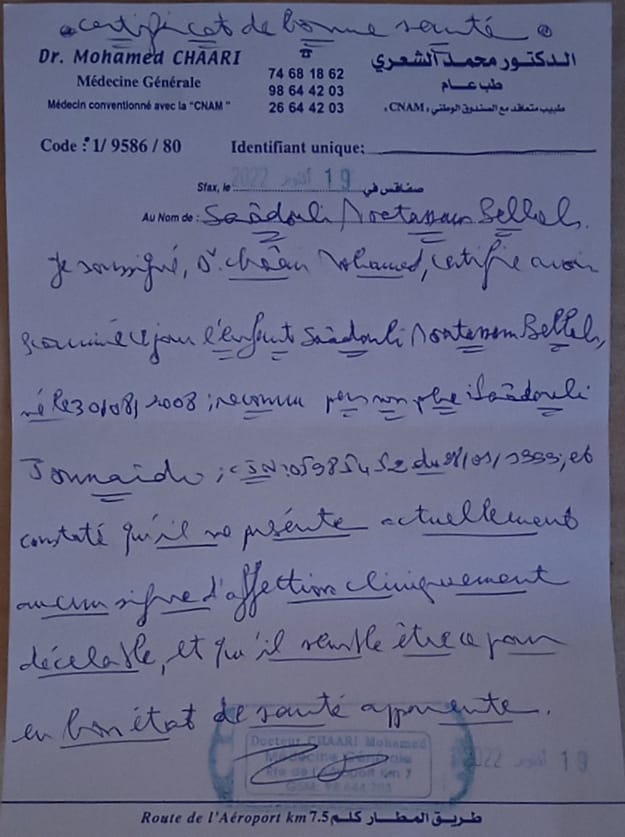 certificat de bonne santé
Dr. Mohamed CHAARI
Médecine Générale
Médecin conventionné avec la "CNAM"
☎
74 68 18 62
98 64 42 03
26 64 42 03
الدكتور محمد الشعري
طب عام
طبيب متعاقد مع الصندوق الوطني «CNAM»
Code : 1/ 9586 / 80
Identifiant unique:
Sfax, le 19 أكتوبر 2022 صفاقس في
Au Nom de : Saâdouli Moetassem Bellah.
Je soussigné, Dr. Châari Mohamed, certifie avoir
examiné ce jour l'enfant Saâdouli Moetassem Bellah,
né le 30/08/2008 ; reconnu par son père : Saâdouli
; CIN : et
constaté qu'il ne présente actuellement
aucun signe d'affection cliniquement
décelable, et qu'il semble être ce jour
en bon état de santé apparente.
Docteur CHAARI Mohamed
Médecine Générale
Rte de l'Aéroport Km 7
GSM: 98 644 203
19 أكتوبر 2022
Route de l'Aéroport km 7.5 طريق المطار كلم